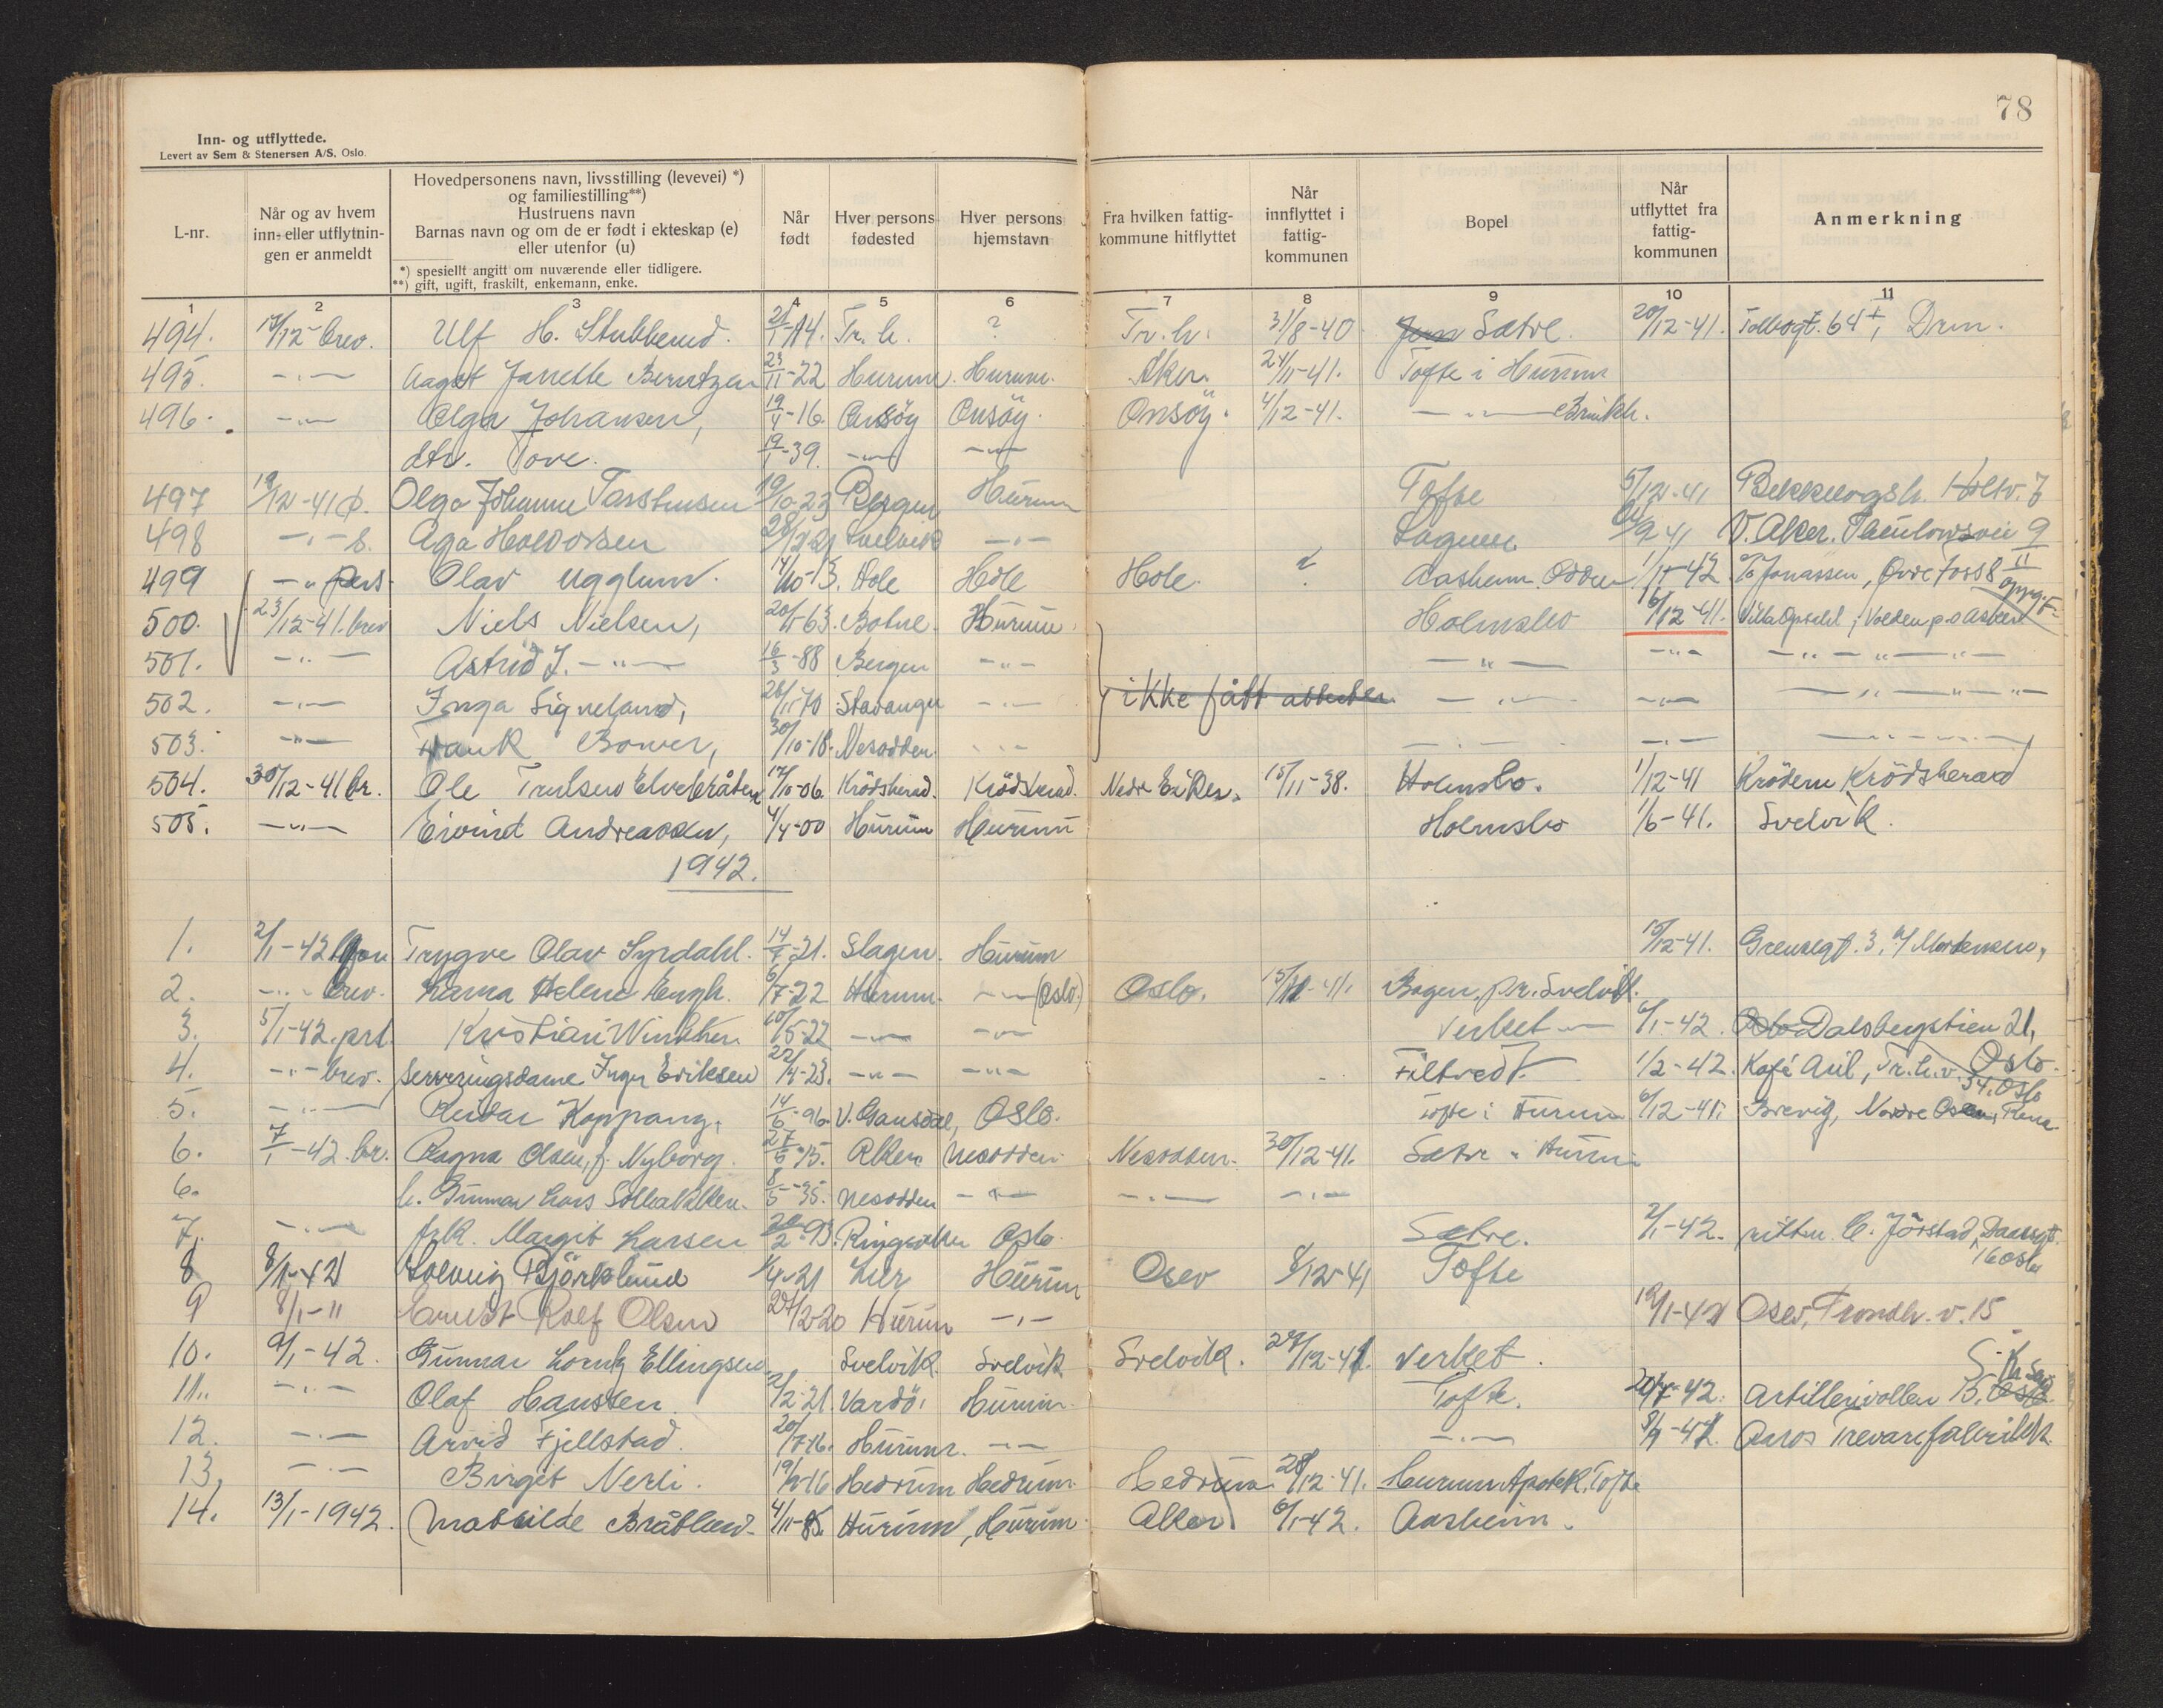 78
Inn- og utflyttede.
Levert av Sem & Stenersen A/S, Oslo.
L-nr.
Når og av hvem inn- eller utflytnin-gen er anmeldt
Hovedpersonens navn, livsstilling (levevei) *)
og familiestilling**)
Hustruens navn
Barnas navn og om de er født i ekteskap (e)
eller utenfor (u)
*) spesiellt angitt om nuværende eller tidligere.
**) gift, ugift, fraskilt, enkemann, enke.
Når født
Hver persons fødested
Hver persons hjemstavn
Fra hvilken fattig-kommune hitflyttet
Når innflyttet i fattig-kommunen
Bopel
Når utflyttet fra fattig-kommunen
Anmerkning
1 2 3 4 5 6 7 8 9 10 11
494. 17/12- brev. Ulf H. Stubberud. 21/1-14. Tr.h. ? Tr.h. 31/8-40 Sætre. 20/12-41. Tollbogt. 64 I, Drm.
495. -"- Aagot Janette Berntzen 23/11-22 Hurum. Hurum. Aker. 24/11-41. Tofte i Hurum
496. -"- Olga Johansen, 19/4-16. Onsöy Onsöy. Onsöy. 4/12-41. -"- Brukh.
dtr. Tove. 19/1-39. -"- -"-
497 19/12-41 Olga Johanne 19/10-23 Bergen Hurum Tofte 5/12-41 Bekkelagsh.
498 -"- Aga Halvorsen 28/12-21 Svelvik -"- 9 41 V. Aker. Thaulowsvei 9
499 -"- pers. Olav Ugglum. 14/10-13. Hole Hole Hole. ? Aasheim Odden 1/1-42 To Jonassen, Øvre Foss 8 II oppg. F.
500. 23/12-41. brev Niels Nielsen, 20/1-63. Botne. Hurum. Holmsbo 16/12-41. Villa Opsahl, Volden p.o. Asker
501. -"- Astrid J. -"- 16/3-88 Bergen -"- -"- -"- -"- -"- -"-
502. -"- Inga Signeland, 26/11-70 Stavanger -"- ikke fått -"- -"- -"- -"- -"-
503. -"- Frank Bower, 30/10-18. Nesodden. -"- -"- -"- -"-
504. 30/12-41 br. Ole Trulsen Elvebråten 17/10-06. Krödsherad. Krödsherad. Nedre Eiker. 15/11-38. Holmsbo. 1/12-41 Kröderen Krödsherad
505. -"- Eivind Andreassen, 4/4-00 Hurum Hurum Holmsbo 1/6-41. Svelvik.
1942.
1. 2/1-42 Trygve Olav Syrdahl. 14/7-21. Slagen. Hurum 15/12-41. Grensegt. 3, Mortensen,
2. -"- brev. Helene Engh. 6/7-22 Hurum. -"- (Oslo.) Oslo. 15/10-41. Bogen pr. Svelvik.
3. 5/1-42. prt. Kristian Winther. 10/5-22 -"- -"- Verket -"- 6/1-42. Oslo Dalsbergstien 21, Oslo.
4. -"- brev. Serveringsdame Inger Eriksen 22/4-23. -"- -"- Filtvedt. 1/2-42. Kafé Aril, Tr.h.v. 54. Oslo
5. -"- Reidar Koppang, 14/6-96. V. Gausdal, Oslo. Tofte i Hurum 6/12-41. Brevig, Nordre Osen, Rena
6. 7/1-42. br. Ragna Olsen, f. Nyborg. 27/6-15. Aker Nesodden Nesodden. 30/12-41. Sætre i Hurum
6. b. Gunnar Lars Solbakken. 8/5-35. Nesodden -"- -"- -"-
7. -"- frk. Margit Larsen 2-93. Ringsaker Oslo. Sætre. 2/1-42. C. Jörstad, Daasgt. 16 Oslo
8 8/1-42 Solveig Björklund 4-21 Lier Hurum Oslo 8/12-41 Tofte
9 8/1-11 Ernst Rolf Olsen 24/12-20 Hurum -"- 12/1-42 Oslo, Trondh. v. 15
10. 9/1-42. Gunnar Lorntz Ellingsen Svelvik. Svelvik Svelvik. 27/12-41. Verket.
11. -"- Olaf Hansten. 2/12-21. Vardö. Hurum. Tofte. 20/4-42. Artillerivollen
12. -"- Arvid Fjellstad. 20/7-16. Hurum. -"- -"- Aaros Trevarefabrikk
13. -"- Birget Nerli. 19/9-16 Hedrum Hedrum. Hedrum. 28/12-41. Hurum Apotek. Tofte
14. 13/1-1942. Mathilde Bråthen. 4/11-85. Hurum, Hurum. Aker 6/1-42. Aasheim.